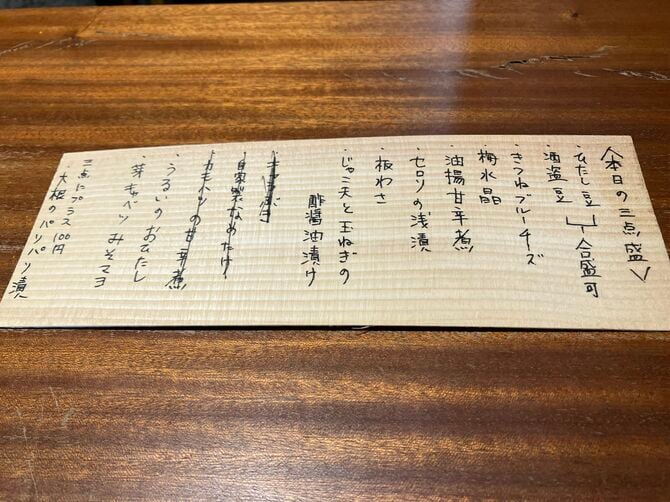 〈本日の三点盛〉
・ひたし豆
・酒盗豆 合盛可
・きつねブルーチーズ
・梅水晶
・油揚甘辛煮
・セロリの浅漬
・板わさ
・じゃこ天と玉ねぎの
酢醤油漬け
・自家製なめたけ
・カキベツの甘辛煮
・うるいのおひたし
・芽キャベツ みそマヨ
三点にプラス100円
・大根のパリパリ漬